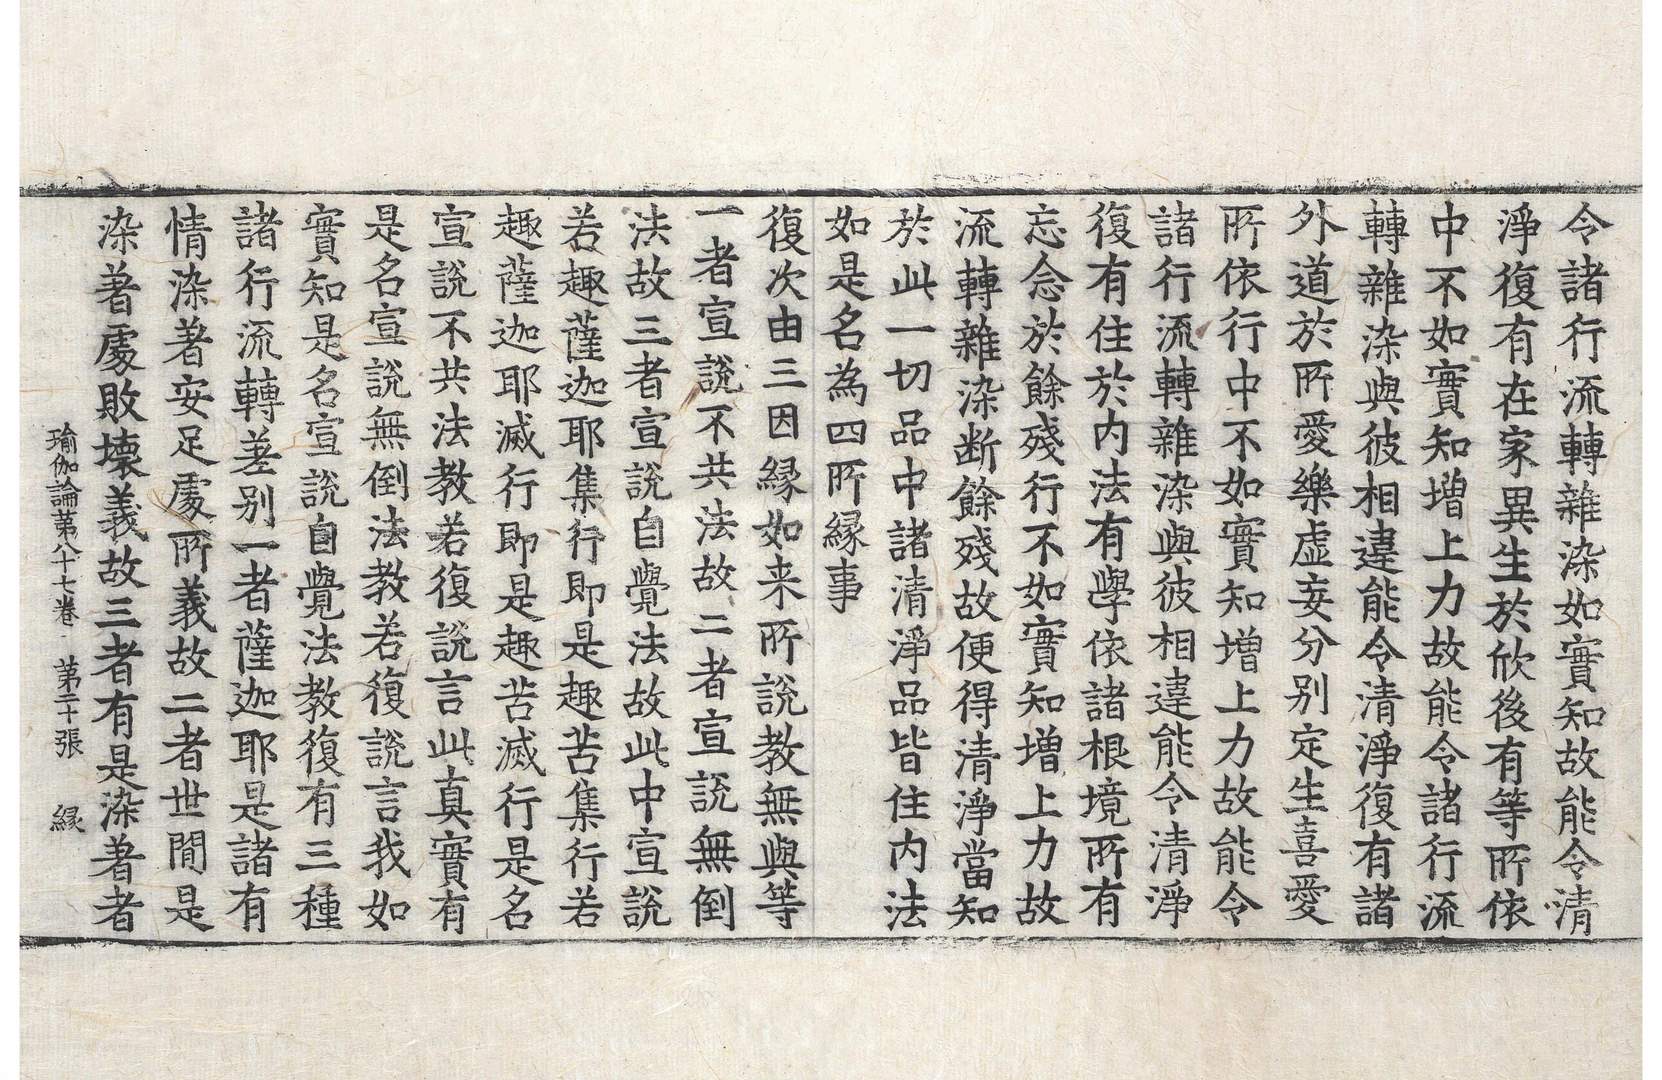 令諸行流轉雜染如實知故能令清
淨復有在家異生於欣後有等所依
中不如實知增上力故能令諸行流
轉雜染與彼相違能令清淨復有諸
外道於所愛樂虛妄分別定生喜愛
所依行中不如實知增上力故能令
諸行流轉雜染與彼相違能令清淨
復有住於內法有學依諸根境所有
忘念於餘殘行不如實知增上力故
流轉雜染断餘殘故便得清淨當知
於此一切品中諸清淨品皆住內法
如是名為四所緣事
復次由三因緣如來所說教無與等
一者宣說不共法故二者宣說無倒
法故三者宣說自覺法故此中宣說
若趣薩迦耶集行即是趣苦集行若
趣薩迦耶滅行即是趣苦滅行是名
宣說不共法教若復說言此真實有
是名宣說無倒法教若復說言我如
實知是名宣說自覺法教復有三種
諸行流轉差別一者薩迦耶是諸有
情染著安足處所義故二者世間是
染著處敗壞義故三者有是染著者
瑜伽論第八十七卷 第二十張 緣